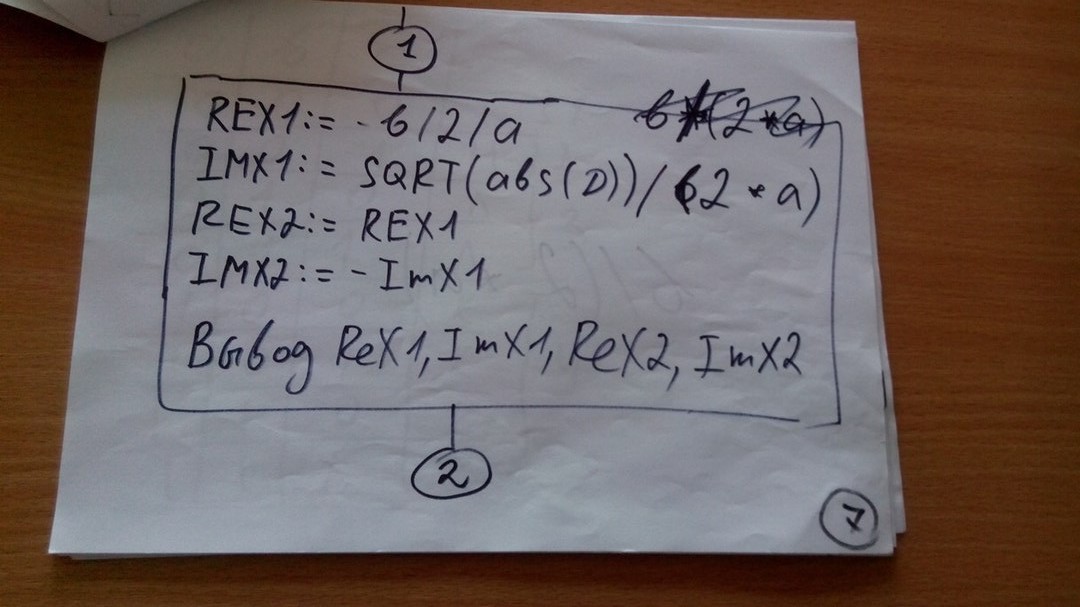 1
REX1:= -b/2/a
IMX1:= SQRT(abs(D))/(2*a)
REX2:= REX1
IMX2:= -ImX1
Вывод ReX1, ImX1, ReX2, ImX2
2
7